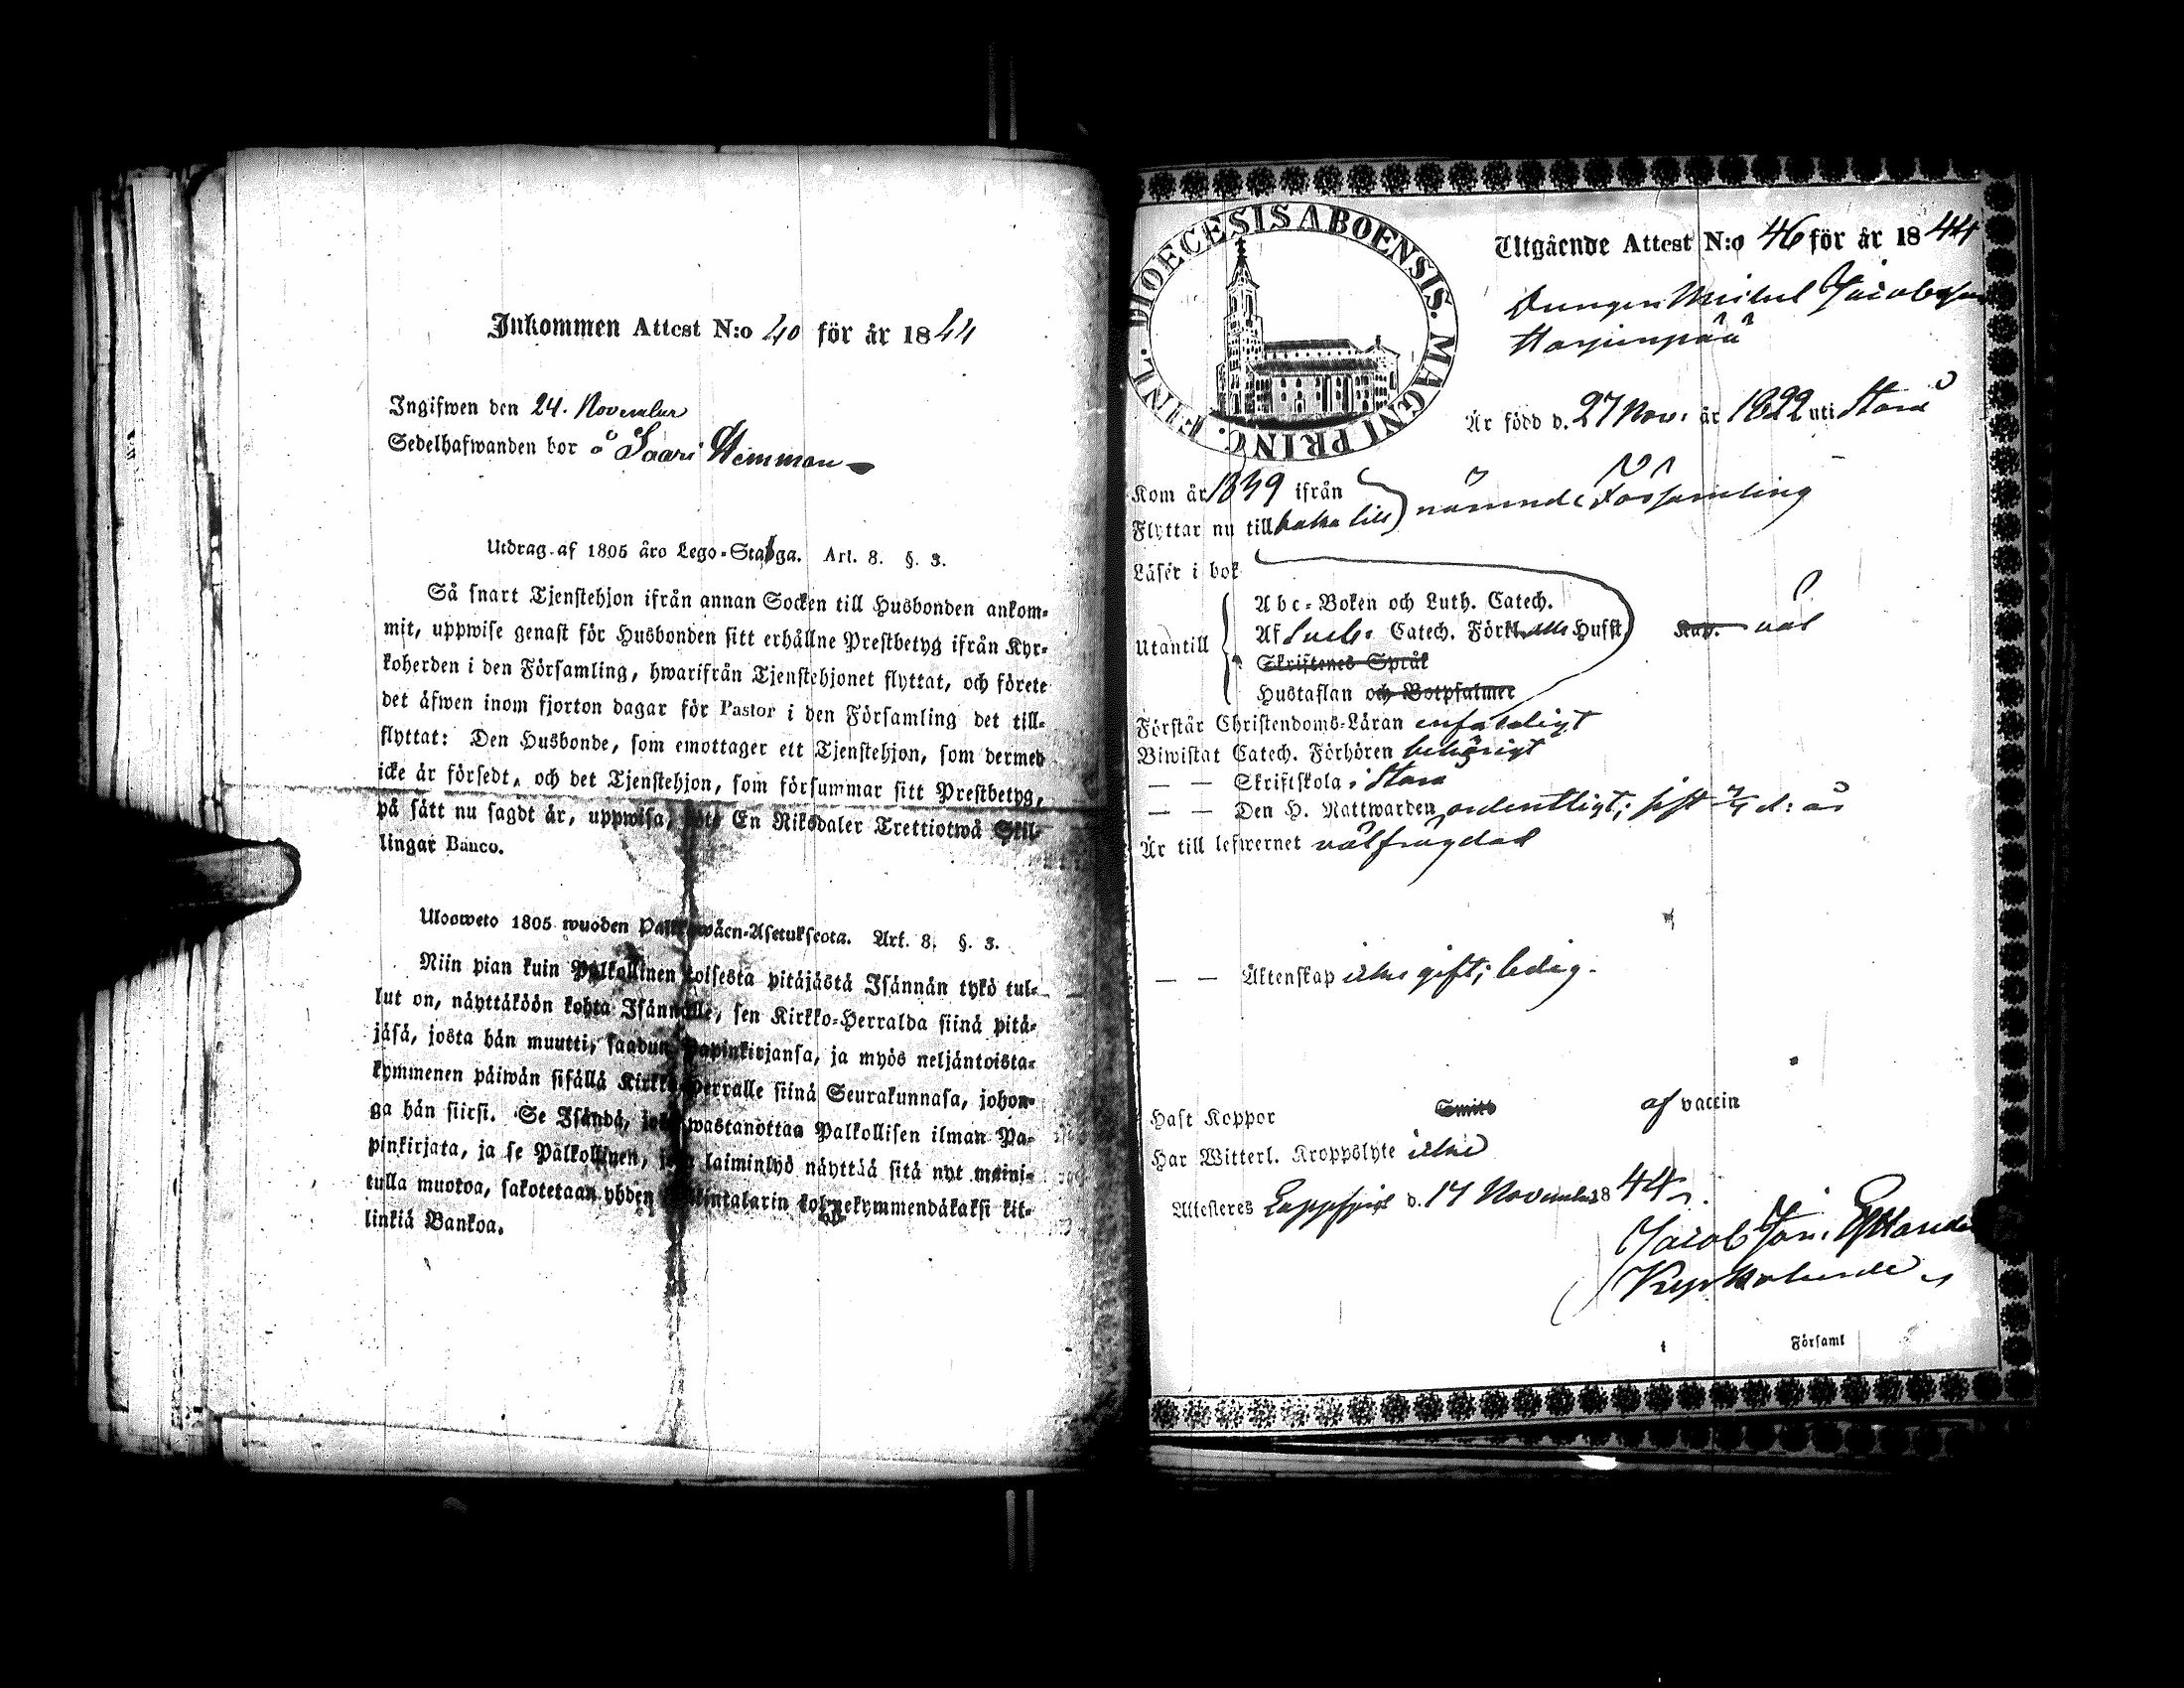 Inkommen Attest N:o 40 för år 1844
Ingifwen den 24. November
Sedelhafwanden bor å Saari Hemman
Utdrag af 1805 åro Lego-Stadga. Art. 8. §. 3.
Så snart Tjenstehjon ifrån annan Socken till Husbonden ankom-
mit, uppwise genast för Husbonden sitt erhållne Prestbetyg ifrån Kyr-
koherden i den Församling, hwarifrån Tjenstehjonet flyttat, och förete
det äfwen inom fjorton dagar för Pastor i den Församling det till-
flyttat: Den Husbonde, som emottager ett Tjenstehjon, som dermed
icke är försedt, och det Tjenstehjon, som försummar sitt Prestbetyg,
på sätt nu sagdt är, uppwisa, böte En Riksdaler Trettiotwå Skil-
lingar Banco.
Ulosweto 1805 wuoden Palkkawäen-Asetuksesta. Art. 8. §. 3.
Niin pian kuin Palkollinen toisesta pitäjästä Isännän tykö tul-
lut on, näyttäköön kohta Isännälle, sen Kirkko-Herralda siinä pitä-
jäsä, josta hän muutti, saadun Papinkirjansa, ja myös neljäntoista-
kymmenen päiwän sisällä Kirkko-Herralle siinä Seurakunnasa, johon-
ga hän siirsi. Se Isändä, joka wastanottaa Palkollisen ilman Pa-
pinkirjata, ja se Palkollinen, joka laiminlyö näyttää sitä nyt maini-
tulla muotoa, sakotetaan yhden Riikintalarin kolmekymmendäkaksi kil-
linkiä Bankoa.
DIOECESIS ABOENSIS. MAGNI PRINC. FINL.
Utgående Attest N:o 46 för år 1844
Drengen Michel Jacobsson
Harjunpää
Är född d. 27 Nov. år 1822 uti Storå
Kom år 1839 ifrån
Flyttar nu till baka till nämnde Församling
Läser i bok
Abc-Boken och Luth. Catech.
Utantill Af Catech. Förkl. Husst. Kap. väl
Skriftenes Språk
Hustaflan och Botpsalmer
Förstår Christendoms-Läran enfaldigt
Biwistat Catech. Förhören behörigt
— — Skriftskola i Storå
— — Den H. Nattwarden ordentligt; sist d: år
Är till lefwernet välfrägdad
— — Äktenskap icke gift; ledig.
Haft Koppor Smitt af vaccin
Har Witterl. Kroppslyte icke
Attesteres Lappfjerd d. 17 November 1844.
Jacob Joh.
Kyrkoherde
Församl